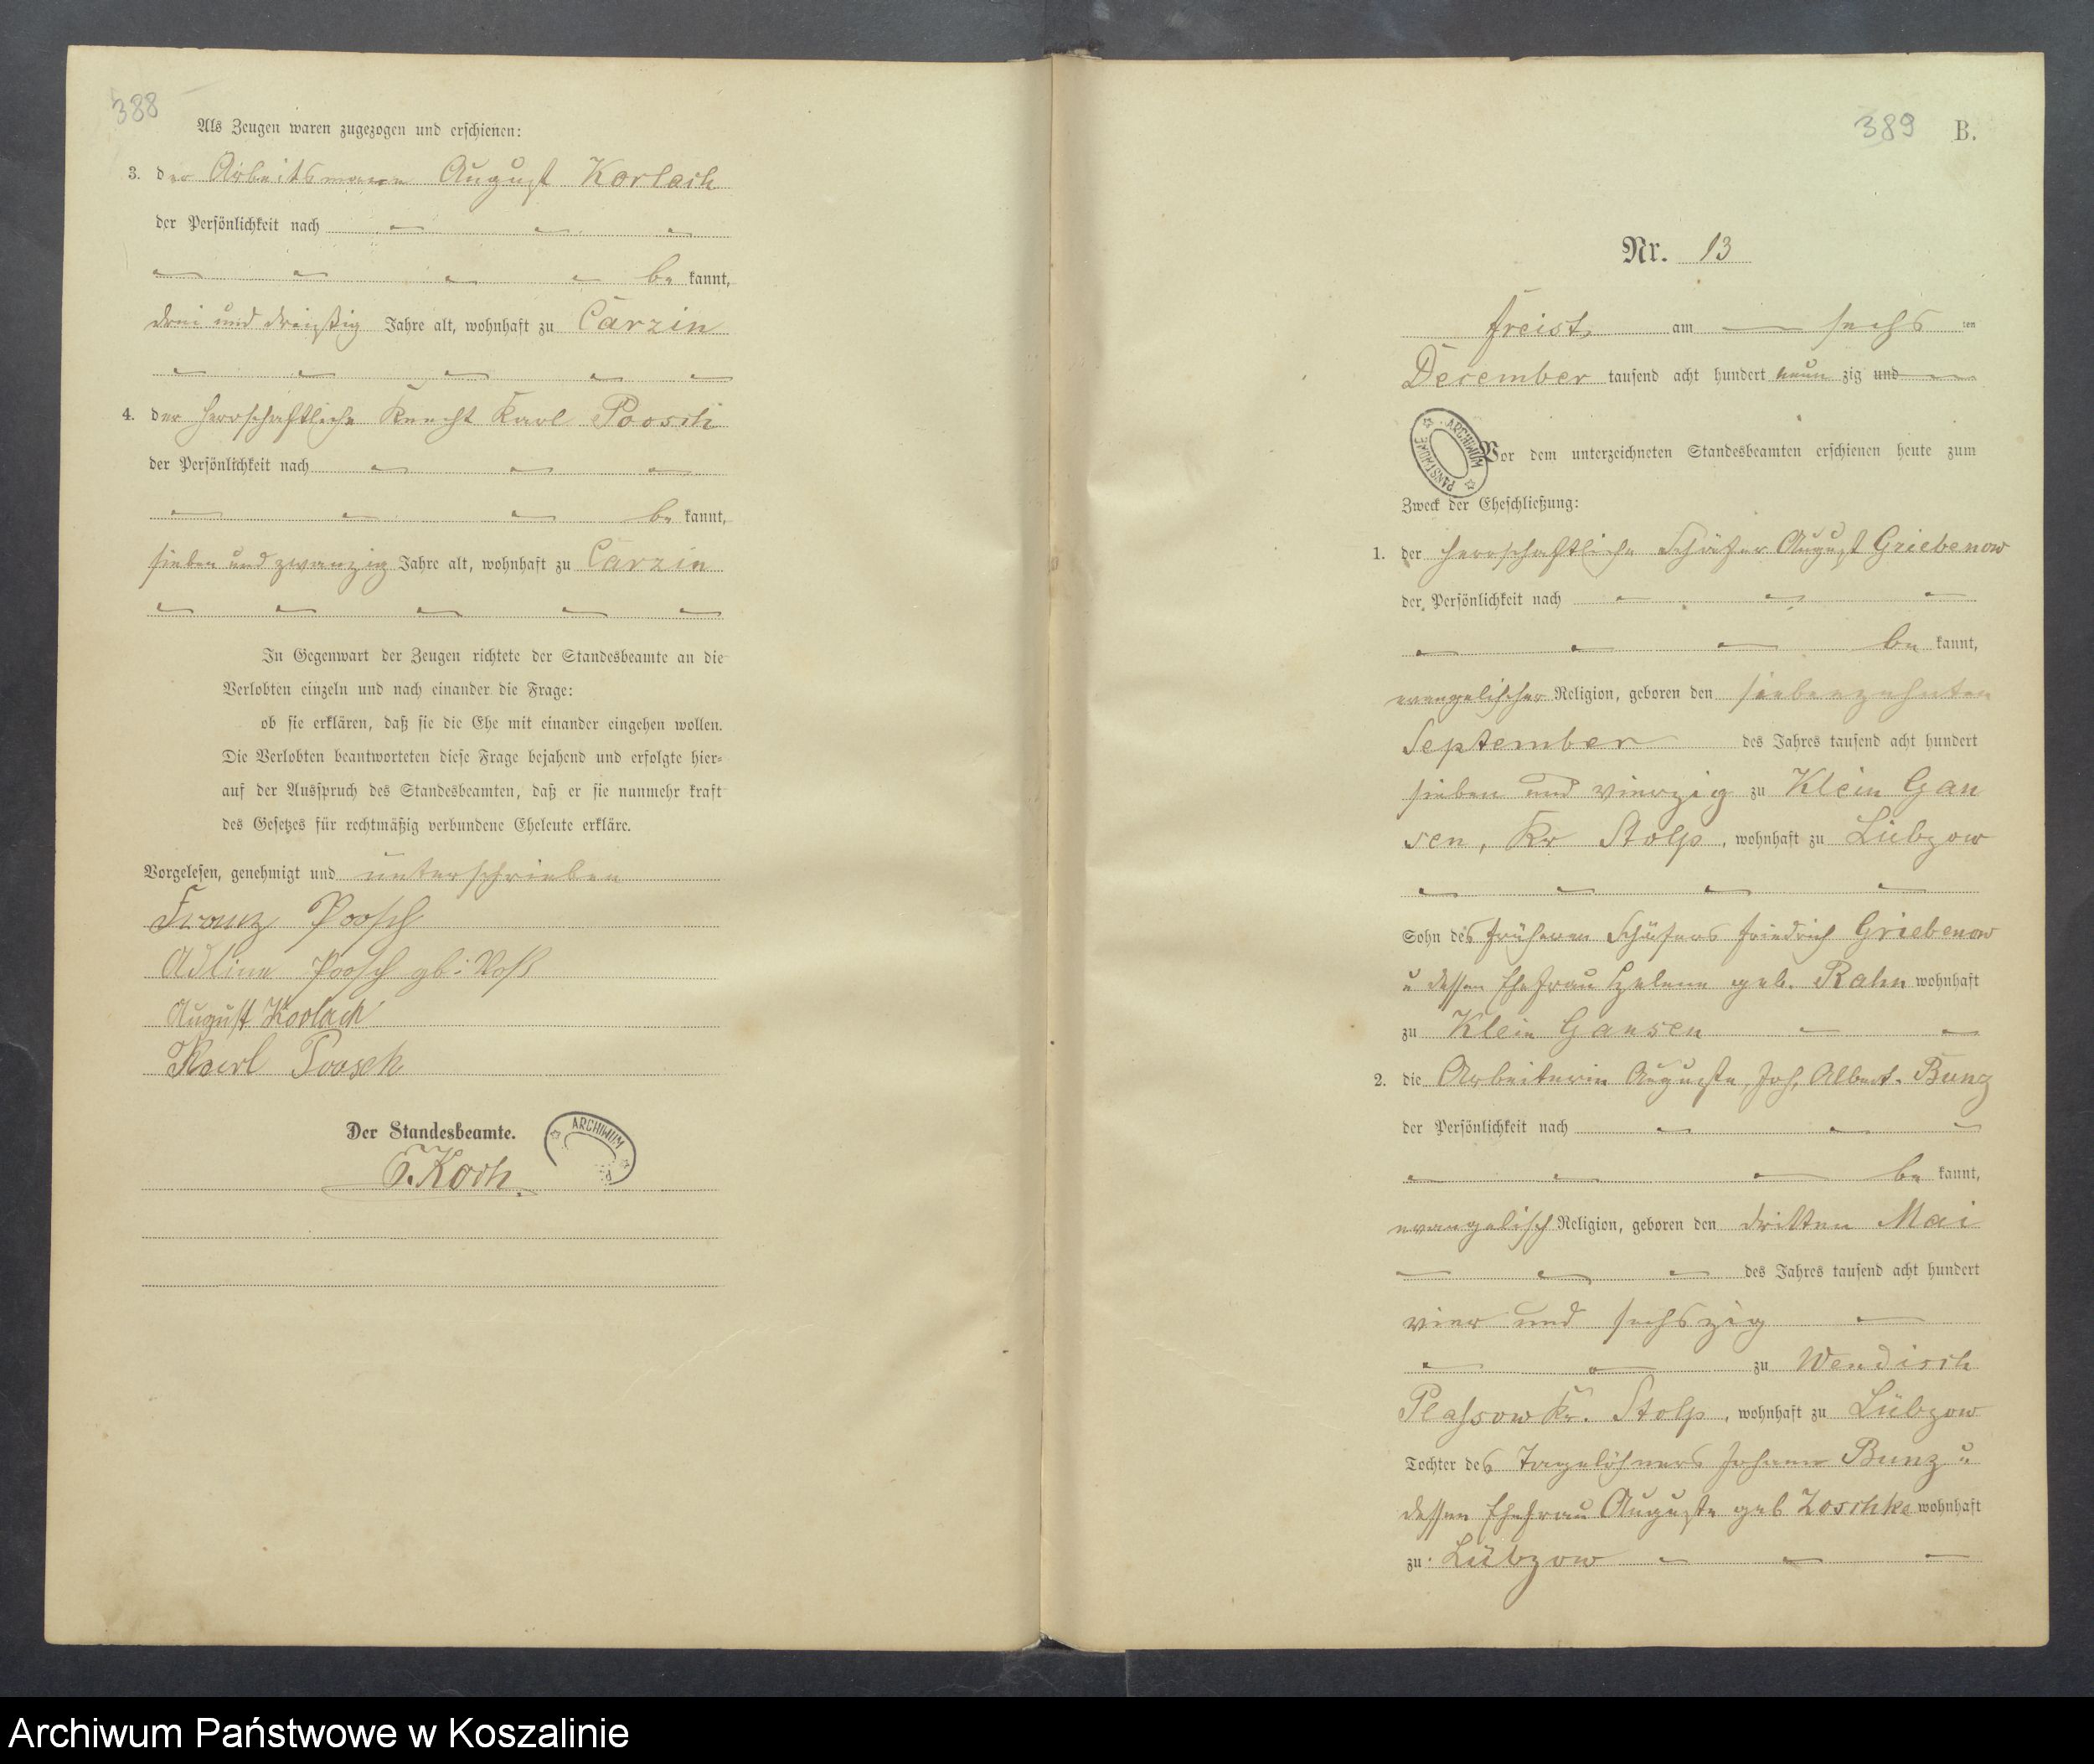 388
Als Zeugen waren zugezogen und erschienen:
3. der Arbeitsmann August Korlach
der Persönlichkeit nach
be kannt,
drei und dreißig Jahre alt, wohnhaft zu Carzin
4. der herrschaftliche Knecht Karl Poosch
der Persönlichkeit nach
be kannt,
sieben und zwanzig Jahre alt, wohnhaft zu Carzin
In Gegenwart der Zeugen richtete der Standesbeamte an die
Verlobten einzeln und nach einander die Frage:
ob sie erklären, daß sie die Ehe mit einander eingehen wollen.
Die Verlobten beantworteten diese Frage bejahend und erfolgte hier-
auf der Ausspruch des Standesbeamten, daß er sie nunmehr kraft
des Gesetzes für rechtmäßig verbundene Eheleute erkläre.
Vorgelesen, genehmigt und unterschrieben
Franz Poosch
Adline Poosch gb: Voß
August Korlach
Karl Poosch
Der Standesbeamte.
ARCHIWUM
Koch.
389 B.
Nr. 13
Freist, am sechs ten
December tausend acht hundert neun zig und
ARCHIWUM PAŃSTWOWE
Vor dem unterzeichneten Standesbeamten erschienen heute zum
Zweck der Eheschließung:
1. der herrschaftliche Schäfer August Griebenow
der Persönlichkeit nach
be kannt,
evangelischer Religion, geboren den siebenzehnten
September des Jahres tausend acht hundert
sieben und vierzig zu Klein Gan
sen, Kr Stolp, wohnhaft zu Lübzow
Sohn des früheren Schäfers Friedrich Griebenow
u dessen Ehefrau Helene geb. Rahn wohnhaft
zu Klein Gansen
2. die Arbeiterin Auguste, Joh, Albert. Bunz
der Persönlichkeit nach
be kannt,
evangelisch Religion, geboren den dritten Mai
des Jahres tausend acht hundert
vier und sechszig
zu Wendisch
Plassow Kr. Stolp, wohnhaft zu Lübzow
Tochter des Tagelöhners Johann Bunz u
dessen Ehefrau Auguste geb Zoschke wohnhaft
zu Lübzow
Archiwum Państwowe w Koszalinie